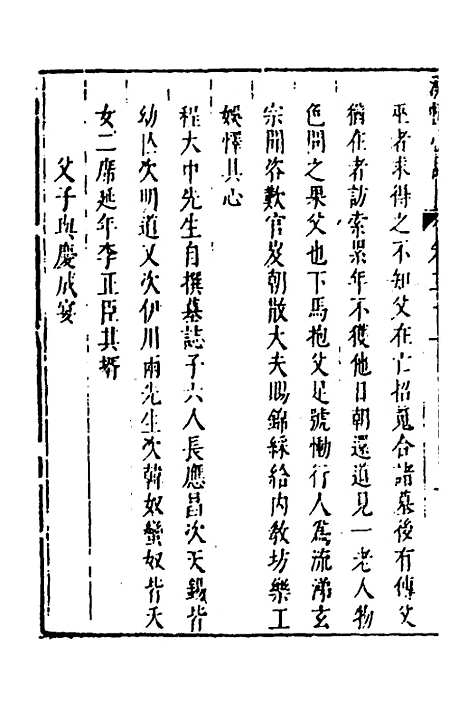 巫者求得之不知父在亡招䰟合諸墓後有傳父
猶在者訪索累年不獲他日朝還道見一老人物
色問之果父也下馬抱父足號慟行人為流涕玄
宗聞咨歎官岌朝散大夫賜錦綵給內教坊樂工
娛懌其心
程大中先生自撰墓誌子六人長應昌次天錫皆
幼亡次明道又次伊川兩先生次韓奴蠻奴皆夭
女二席延年李正臣其壻
父子與慶成宴